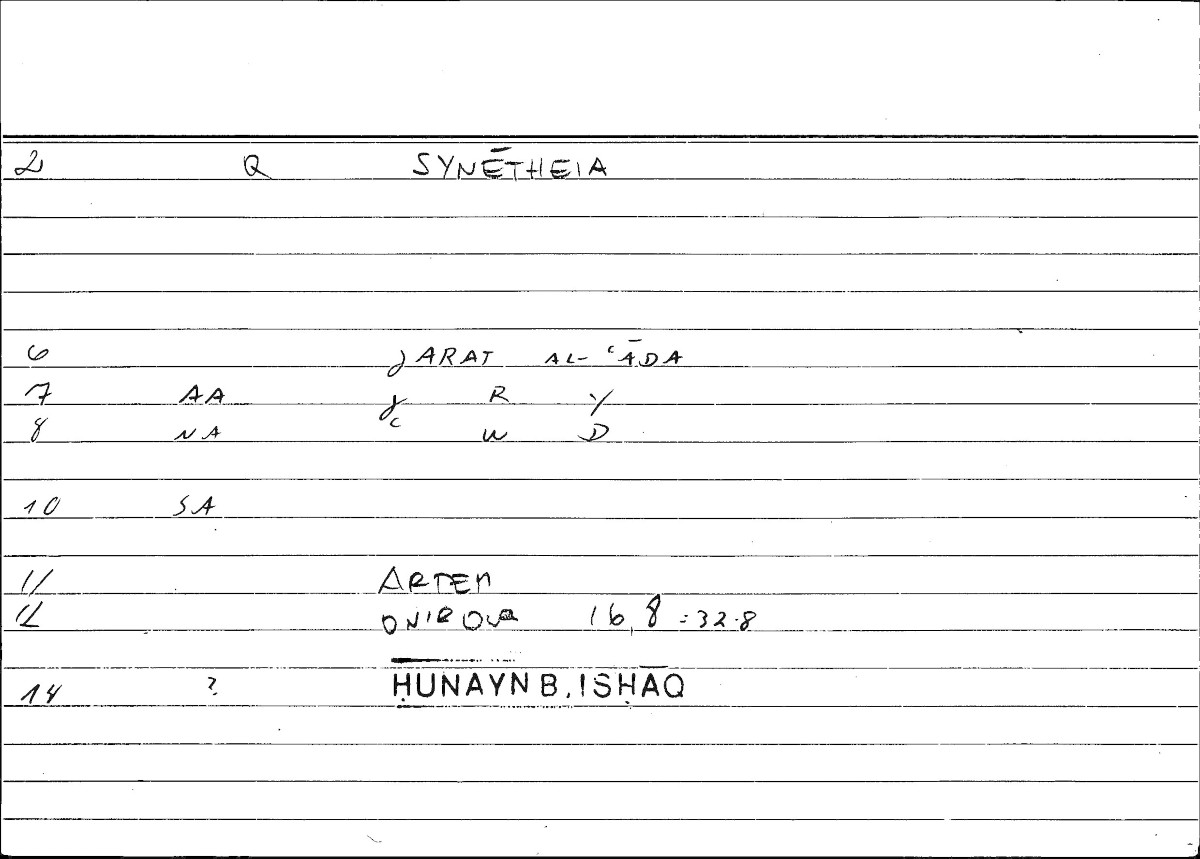 2 Q SYNĒTHEIA
6 ǰARAT AL-ʿĀDA
7 AA ǰ R Y
8 NA ʿ W D
10 SA
11 ARTEM
12 ONIROCR 16,8 = 32.8
14 ? ḤUNAYN B. ISḤĀQ